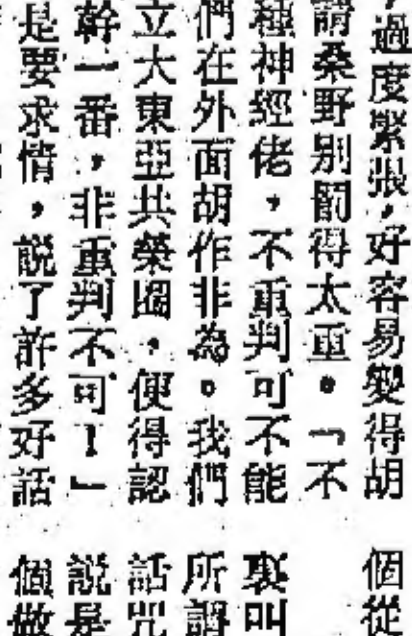 過度緊張，好容易變得胡
請桑野別罰得太重。「不
種神經佬，不重判可不能
們在外面胡作非為。我們
立大東亞共榮圈，便得認
幹一番，非重判不可！」
是要求情，說了許多好話
個從
裏叫
所謂
話咒
說是
個做